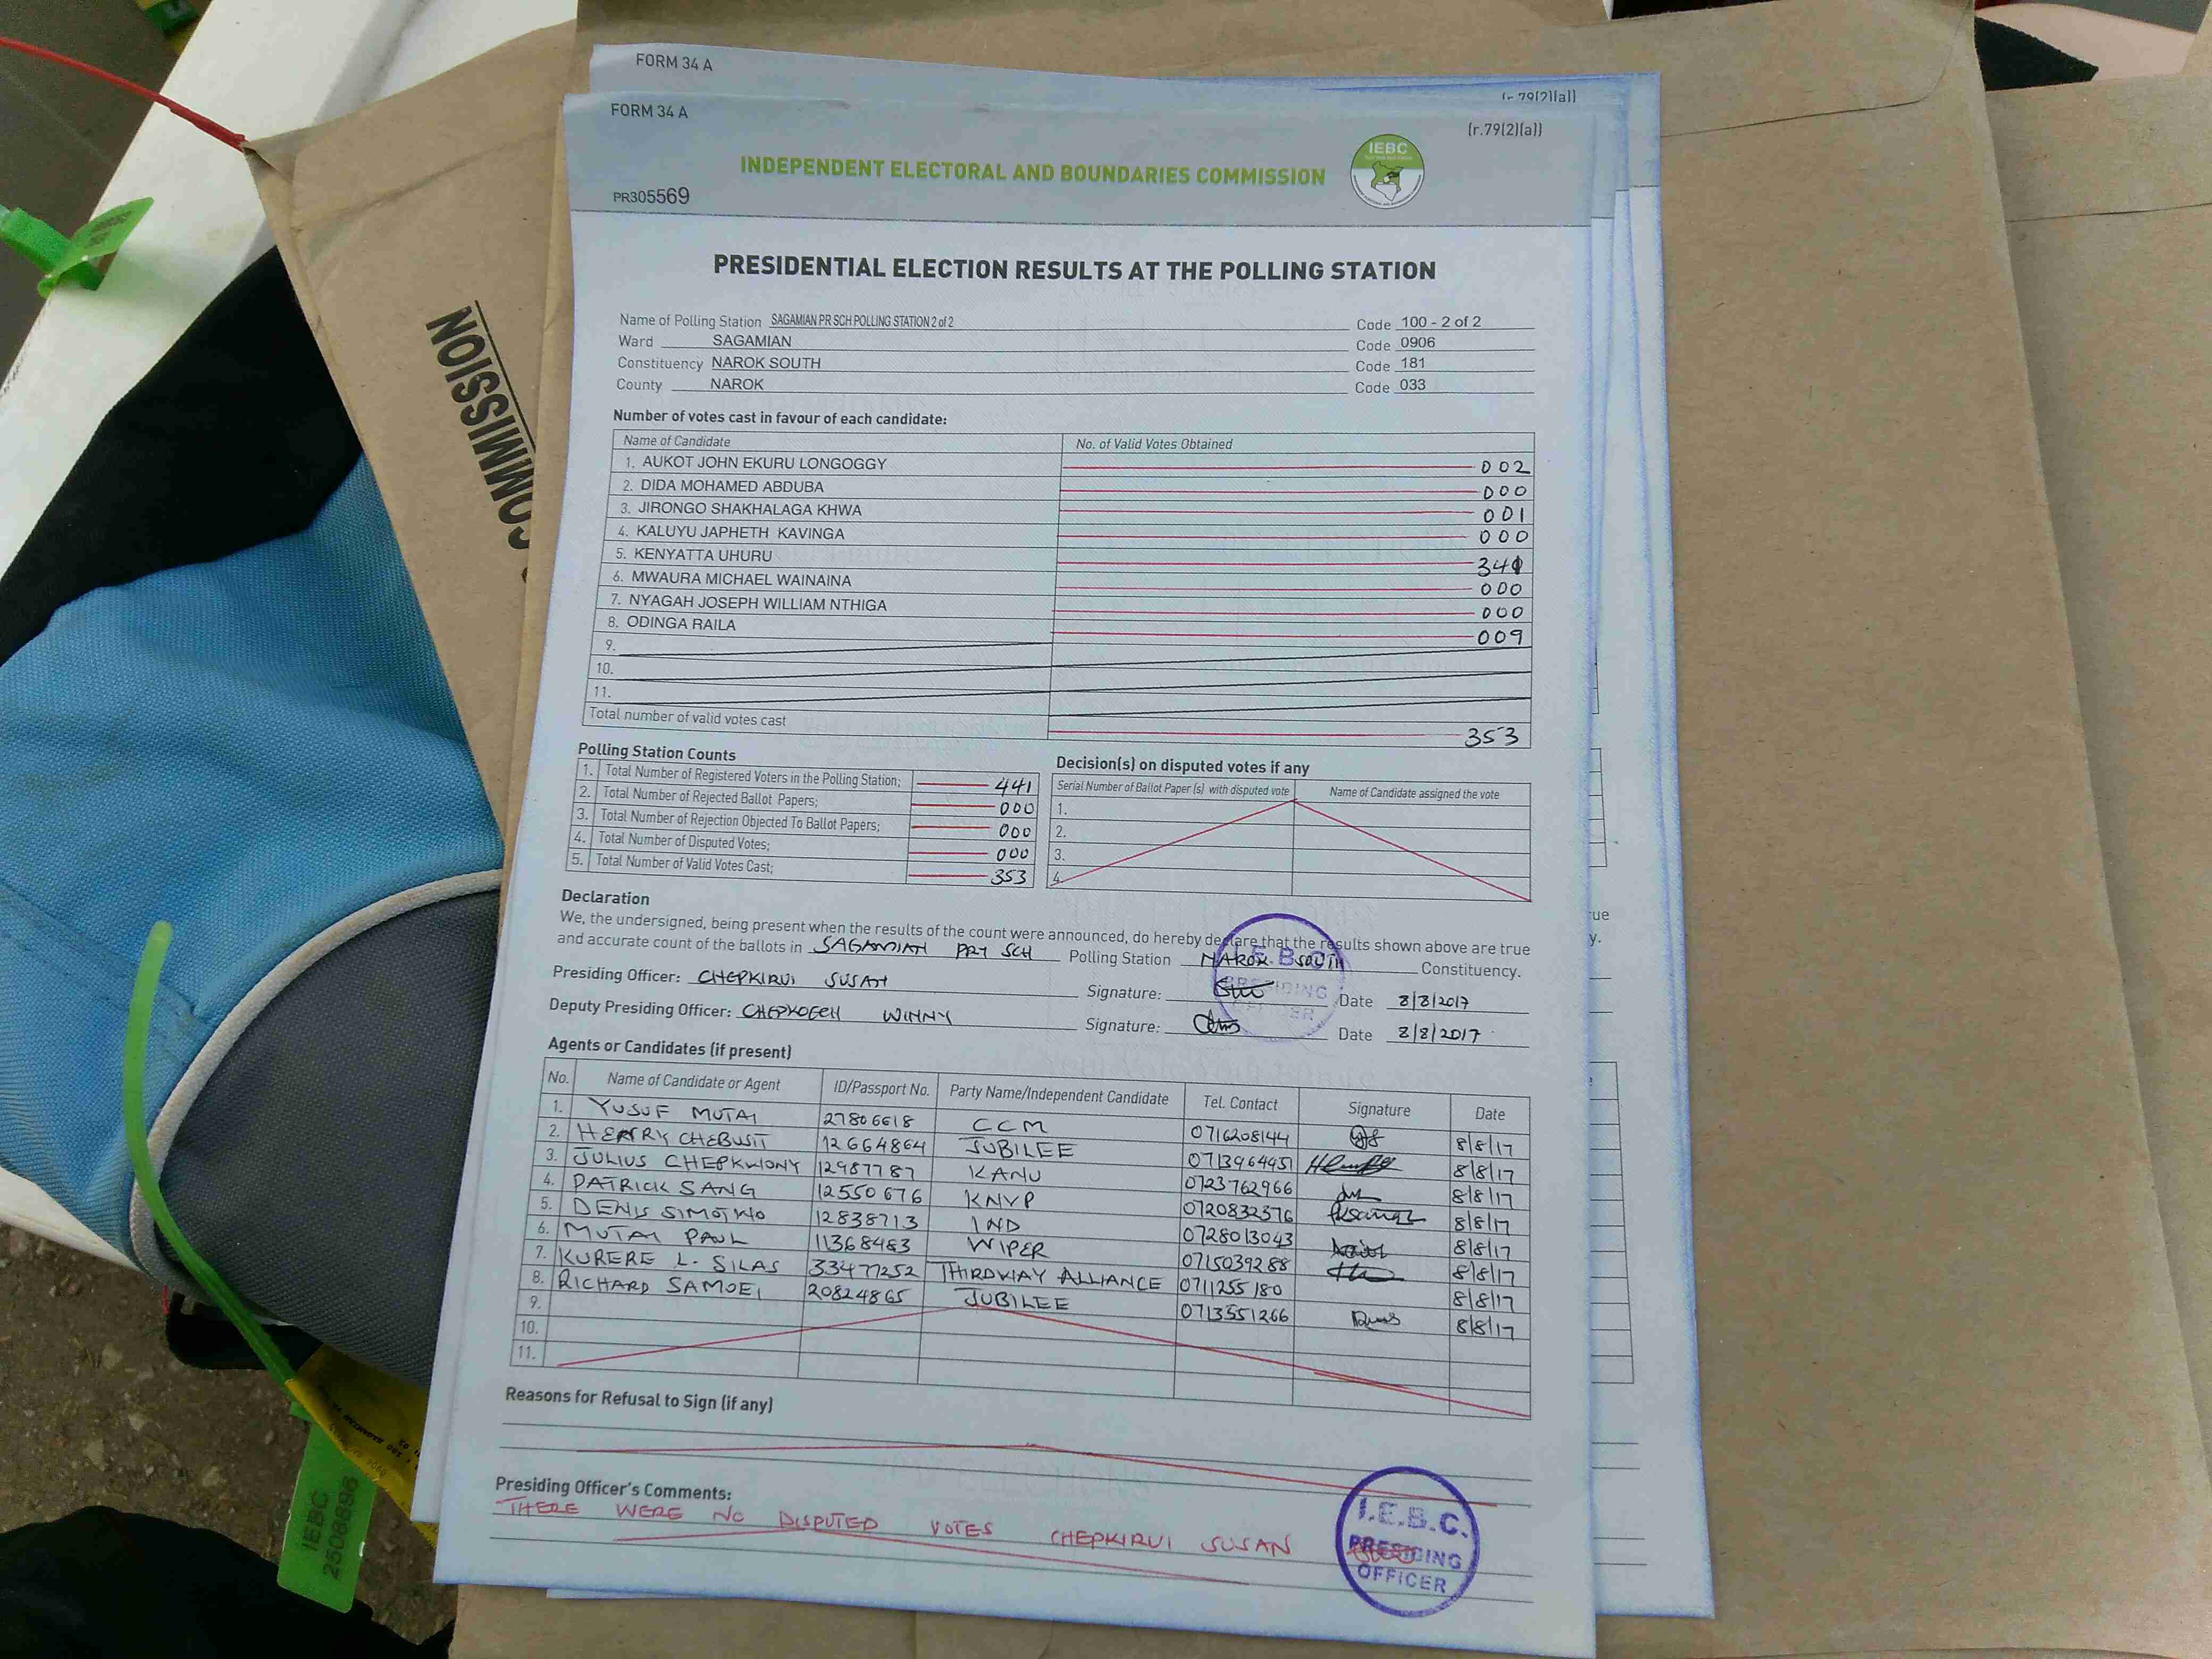 FORM 34 A
(r.79(2)(a))
FORM 34 A
(r.79(2)(a))
INDEPENDENT ELECTORAL AND BOUNDARIES COMMISSION
IEBC
PR305569
PRESIDENTIAL ELECTION RESULTS AT THE POLLING STATION
Name of Polling Station SAGAMIAN PR SCH POLLING STATION 2 of 2 Code 100 - 2 of 2
Ward SAGAMIAN Code 0906
Constituency NAROK SOUTH Code 181
County NAROK Code 033
COMMISSION
Number of votes cast in favour of each candidate:
Name of Candidate No. of Valid Votes Obtained
1. AUKOT JOHN EKURU LONGOGGY 002
2. DIDA MOHAMED ABDUBA 000
3. JIRONGO SHAKHALAGA KHWA 001
4. KALUYU JAPHETH KAVINGA 000
5. KENYATTA UHURU
6. MWAURA MICHAEL WAINAINA 000
7. NYAGAH JOSEPH WILLIAM NTHIGA 000
8. ODINGA RAILA 009
9.
10.
11.
Total number of valid votes cast 353
Polling Station Counts
1. Total Number of Registered Voters in the Polling Station; 441
2. Total Number of Rejected Ballot Papers; 000
3. Total Number of Rejection Objected To Ballot Papers; 000
4. Total Number of Disputed Votes; 000
5. Total Number of Valid Votes Cast; 353
Decision(s) on disputed votes if any
Serial Number of Ballot Paper (s) with disputed vote Name of Candidate assigned the vote
1.
2.
3.
4.
Declaration
We, the undersigned, being present when the results of the count were announced, do hereby declare that the results shown above are true
and accurate count of the ballots in SAGAMIAN PRY SCH Polling Station NAROK SOUTH Constituency.
Presiding Officer: CHEPKIRUI SUSAN Signature: Date 8/8/2017
Deputy Presiding Officer: CHEPKOECH WINNY Signature: Date 8/8/2017
I.E.B.C
PRESIDING
OFFICER
Agents or Candidates (if present)
No. Name of Candidate or Agent ID/Passport No. Party Name/Independent Candidate Tel. Contact Signature Date
1. YUSUF MUTAI 27806618 CCM 0716208144 8/8/17
2. HENRY CHEBUSIT 12664864 JUBILEE 0713964951 8/8/17
3. JULIUS CHEPKWONY 12987787 KANU 0723762966 8/8/17
4. PATRICK SANG 12550676 KNVP 0720832376 8/8/17
5. DENIS 12838713 IND 0728013043 8/8/17
6. MUTAI PAUL 11368483 WIPER 0715039288 8/8/17
7. KURERE L. SILAS 33477252 THIRDWAY ALLIANCE 0711255180 8/8/17
8. RICHARD SAMOEI 20824865 JUBILEE 0713551266 8/8/17
9.
10.
11.
Reasons for Refusal to Sign (if any)
Presiding Officer's Comments:
THERE WERE NO DISPUTED VOTES CHEPKIRUI SUSAN
I.E.B.C.
PRESIDING
OFFICER
IEBC